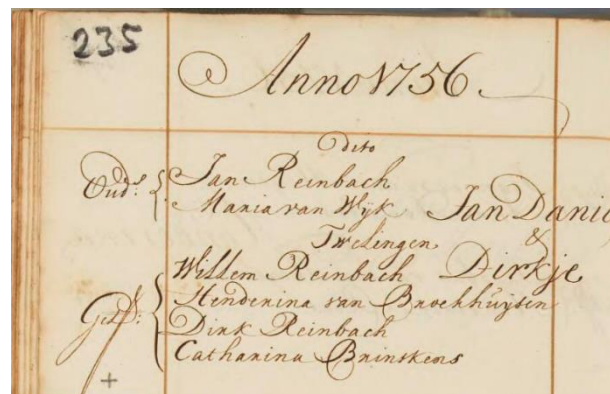 235
Anno 1756.
dito
Oud.s Jan Reinbach
Maria van Wijk Jan Danie
Twelingen &
Willem Reinbach Dirkje
Henderina van Broekhuijsen
Get: Dirk Reinbach
Catharina Brinskens
+